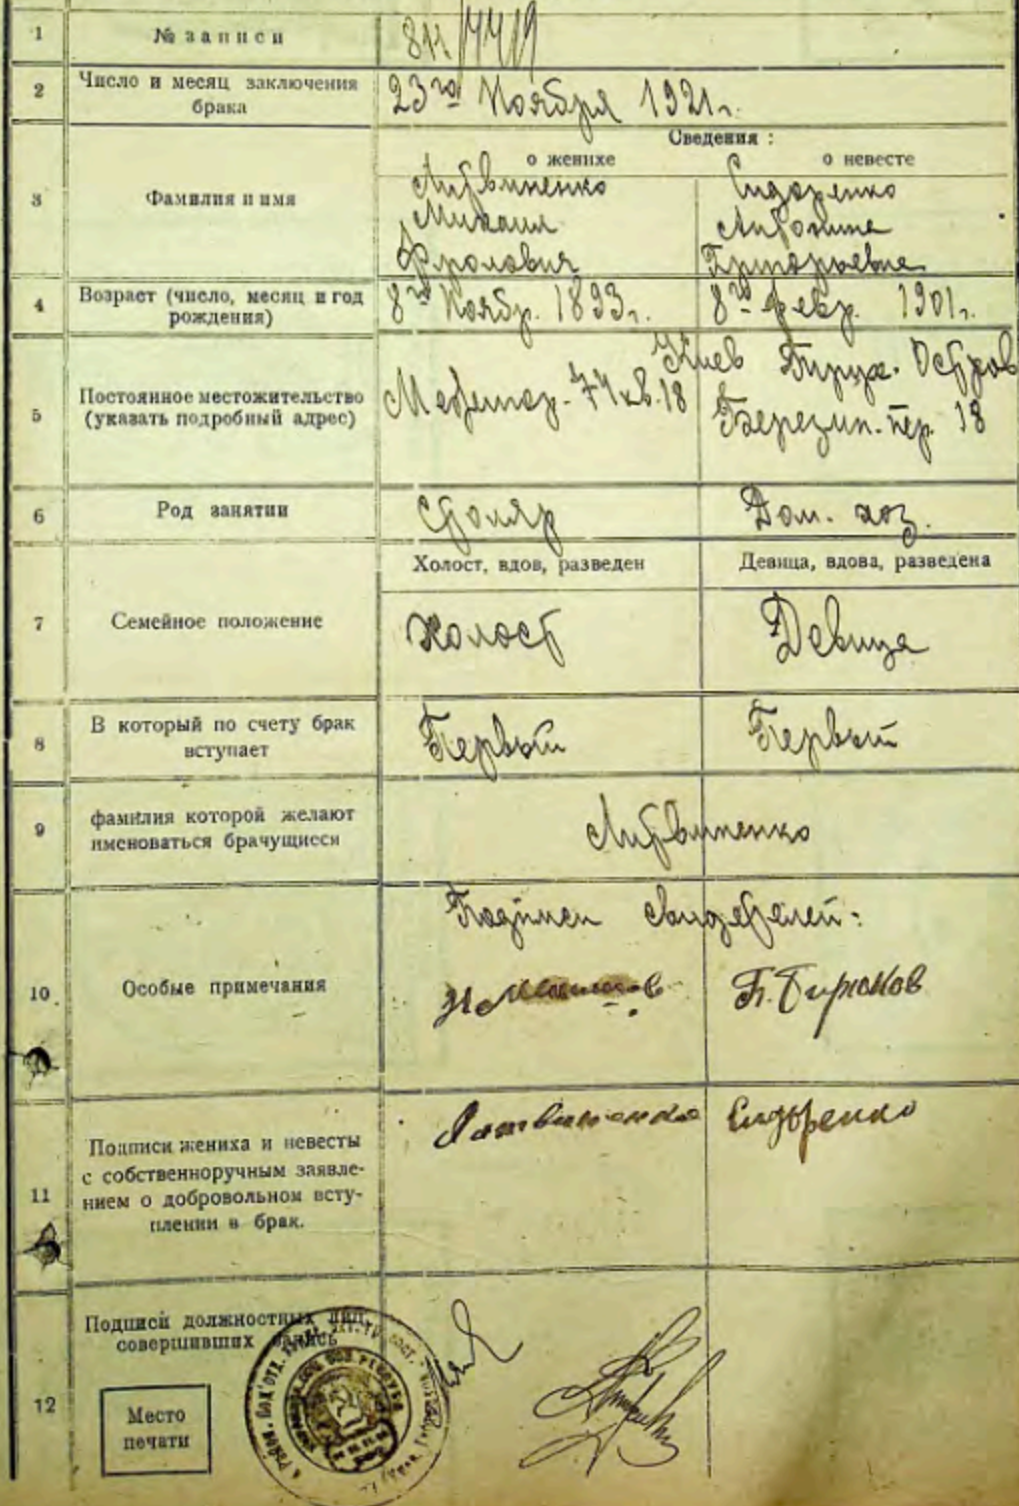 1 № записи 811/7419
2 Число и месяц заключения брака 23го Ноября 1921 г.
Сведения :
о женихе о невесте
3 Фамилия и имя
Литвиненко Сидоренко
Михаил Антонина
Фролович Григорьевна
4 Возраст (число, месяц и год рождения) 8го Ноябр. 1893 г. 8го февр. 1901 г.
Киев Трух. Остров
5 Постоянное местожительство
(указать подробный адрес) 74 кв. 18 Березин. пер. 18
6 Род занятии Столяр Дом. хоз.
Холост, вдов, разведен Девица, вдова, разведена
7 Семейное положение Холост Девица
8 В который по счету брак
вступает Первый Первый
9 фамилия которой желают
именоваться брачущиеся Литвиненко
Подписи свидетелей:
10 Особые примечания
11 Подписи жениха и невесты
с собственноручным заявле-
нием о добровольном всту-
плении в брак.
Литвиненко Сидоренко
12 Подписи должностных лиц,
совершивших запись
Место
печати